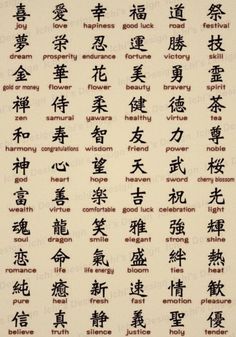 喜 愛 幸 福 道 祭
joy love hapiness good luck road festival
夢 栄 忍 運 勝 技
dream prosperity endurance fortune victory skill
金 華 花 美 勇 霊
gold or money flower flower beauty bravery spirit
禅 侍 柔 健 徳 茶
zen samurai yawara healthy virtue tea
和 寿 智 友 力 尊
harmony congratulations wisdom friend power noble
神 心 望 天 武 桜
god heart hope heaven sword cherry blossom
富 善 楽 吉 祝 光
wealth virtue comfortable good luck celebration light
魂 龍 笑 雅 強 輝
soul dragon smile elegant strong shine
恋 命 氣 盛 絆 熱
romance life life energy bloom ties heat
純 癒 新 速 情 歓
pure heal fresh fast emotion pleasure
信 真 静 義 聖 優
believe truth silence justice holy tender